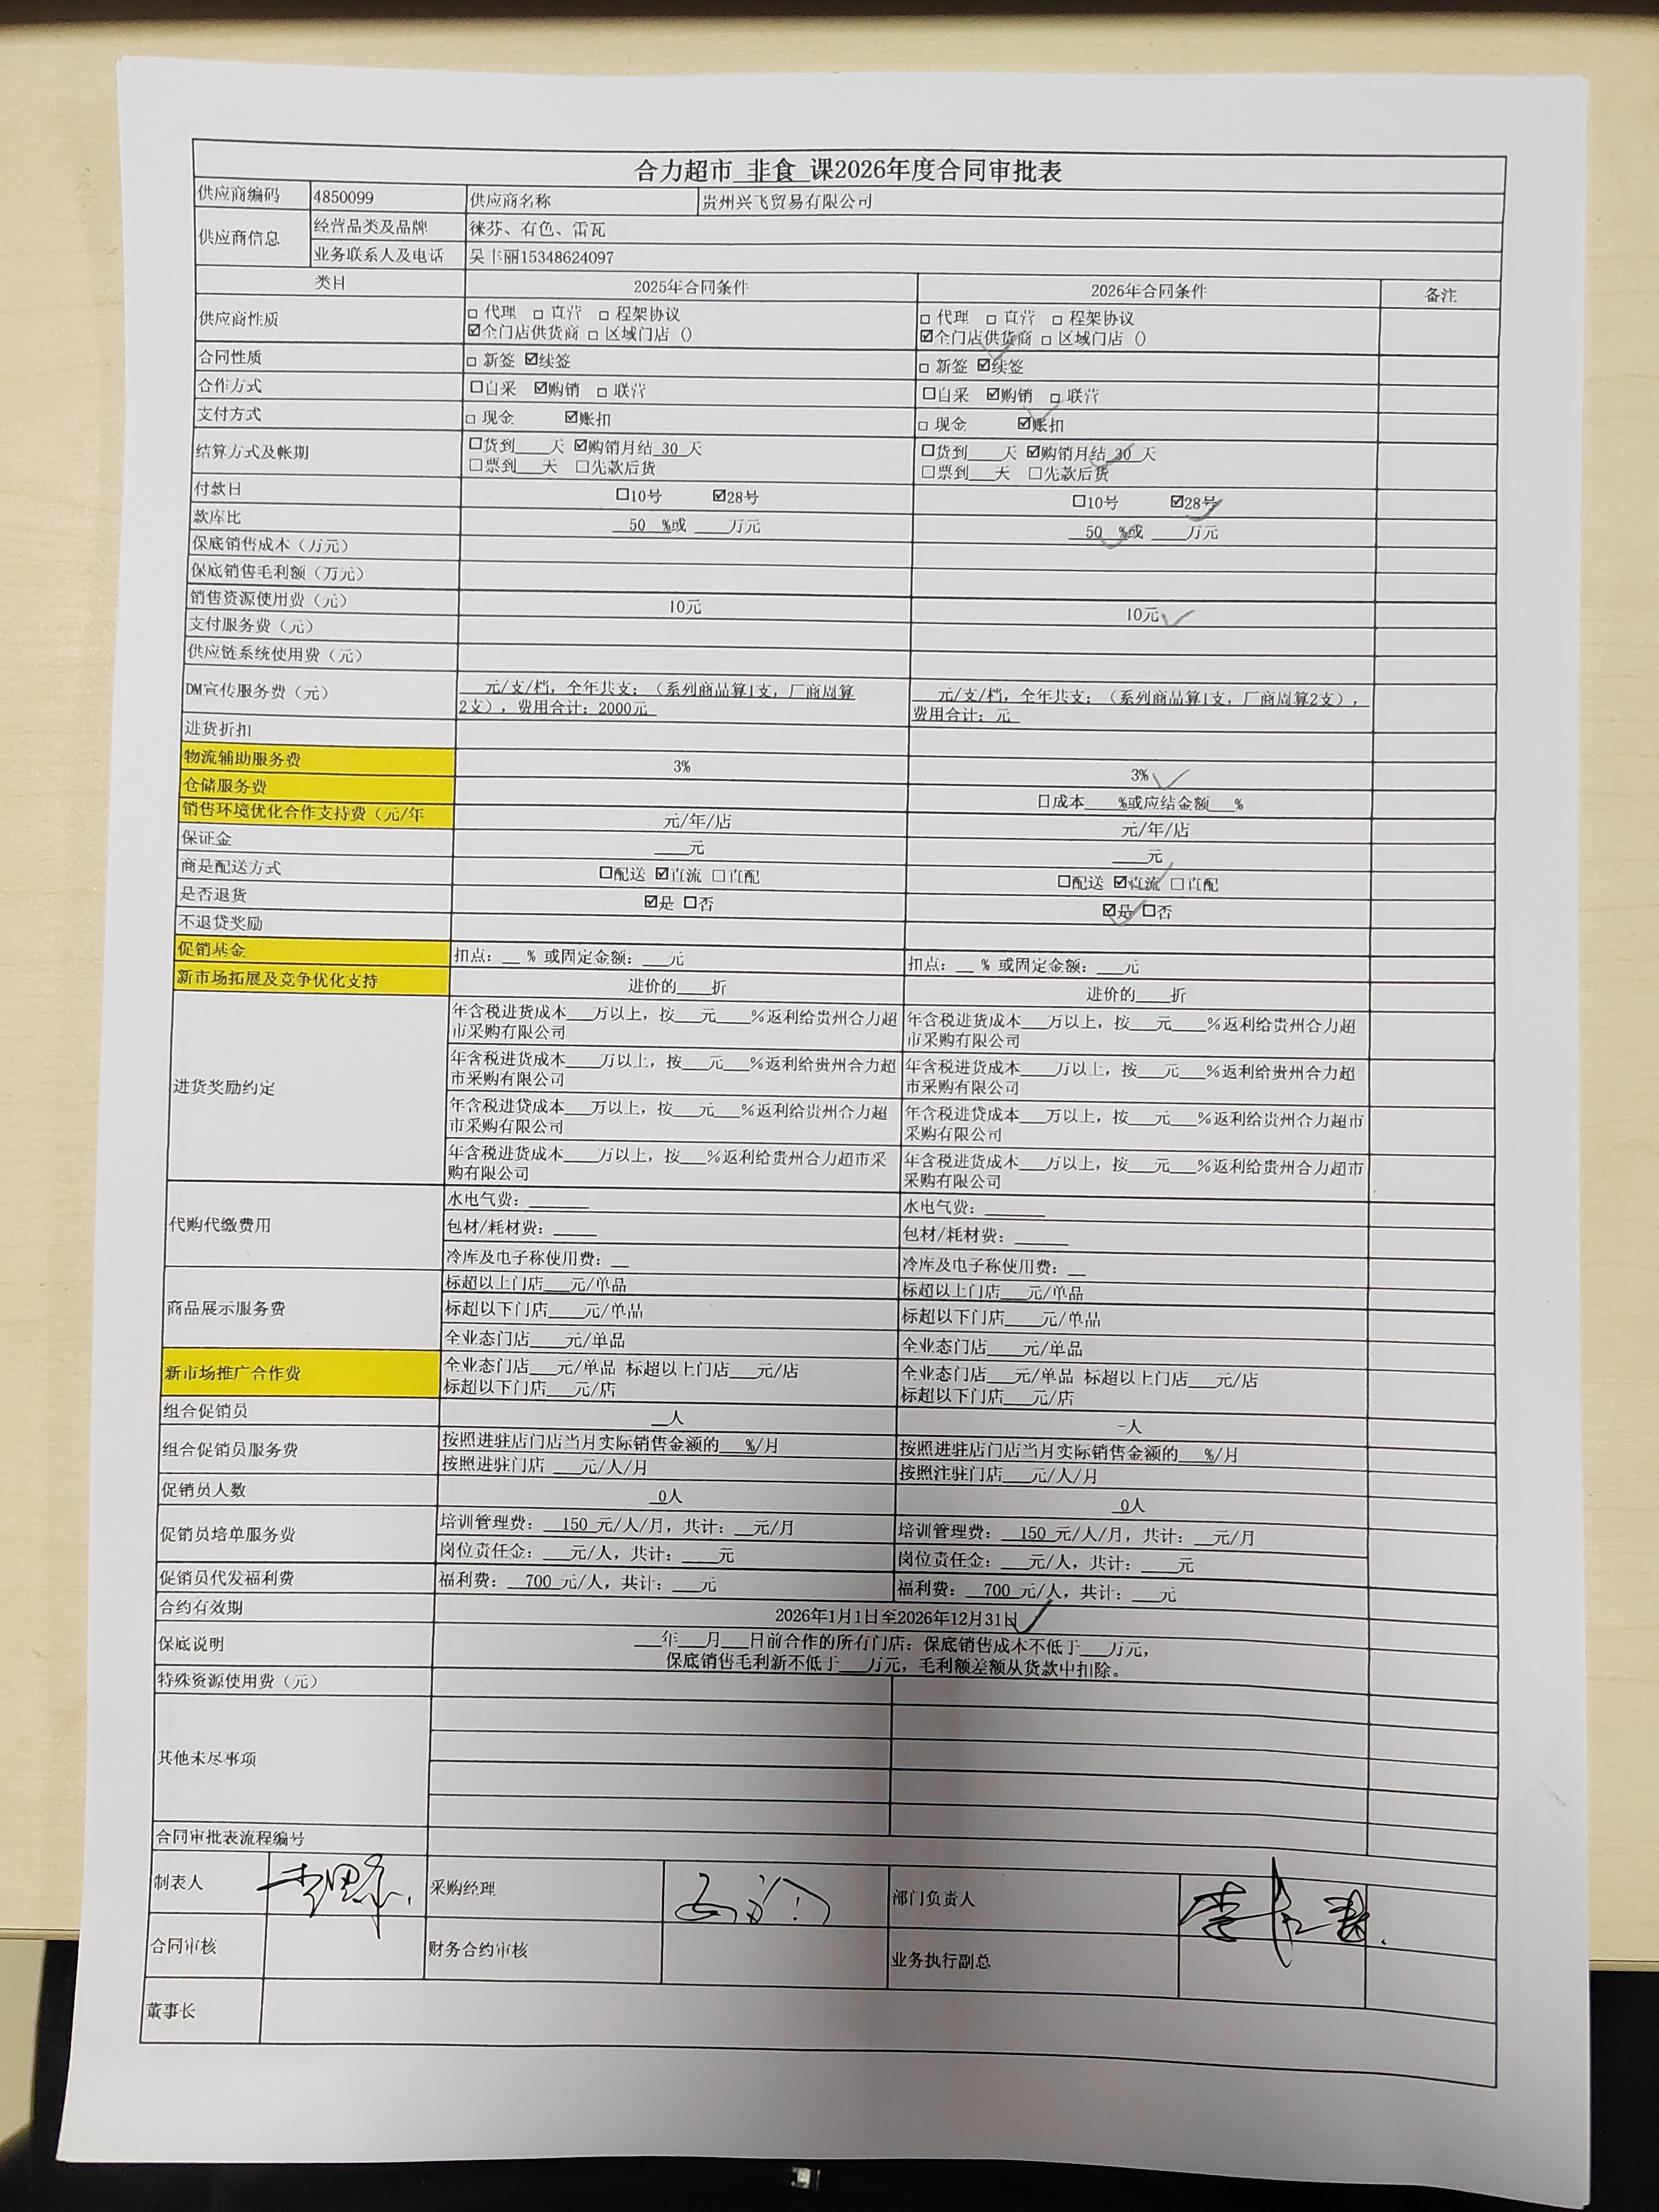 合力超市_非食_课2026年度合同审批表
供应商编码 4850099 供应商名称 贵州兴飞贸易有限公司
供应商信息 经营品类及品牌 徕芬、有色、雷瓦
业务联系人及电话 吴丰丽15348624097
类目 2025年合同条件 2026年合同条件 备注
供应商性质 □ 代理 □ 直营 □ 程架协议 □ 代理 □ 直营 □ 程架协议
☑全门店供货商 □ 区域门店 () ☑全门店供货商 □ 区域门店 ()
合同性质 □ 新签 ☑续签 □ 新签 ☑续签
合作方式 □自采 ☑购销 □ 联营 □自采 ☑购销 □ 联营
支付方式 □ 现金 ☑账扣 □ 现金 ☑账扣
结算方式及帐期 □货到___天 ☑购销月结_30_天 □货到___天 ☑购销月结_30_天
□票到___天 □先款后货 □票到___天 □先款后货
付款日 □10号 ☑28号 □10号 ☑28号
款库比 __50__%或 ____万元 __50__%或 ____万元
保底销售成本（万元）
保底销售毛利额（万元）
销售资源使用费（元） 10元 10元
支付服务费（元）
供应链系统使用费（元）
DM宣传服务费（元） ___元/支/档，全年共支；（系列商品算1支，厂商周算 ___元/支/档，全年共支；（系列商品算1支，厂商周算2支），
2支），费用合计：2000元 费用合计：元
进货折扣
物流辅助服务费 3% 3%
仓储服务费 日成本____%或应结金额___%
销售环境优化合作支持费（元/年 元/年/店 元/年/店
保证金 ____元 ____元
商是配送方式 □配送 ☑直流 □直配 □配送 ☑直流 □直配
是否退货 ☑是 □否 ☑是 □否
不退货奖励
促销基金 扣点：__ % 或固定金额：___元 扣点：__ % 或固定金额：___元
新市场拓展及竞争优化支持 进价的____折 进价的____折
进货奖励约定 年含税进货成本___万以上，按___元____%返利给贵州合力超 年含税进货成本___万以上，按___元____%返利给贵州合力超
市采购有限公司 市采购有限公司
年含税进货成本____万以上，按___元___%返利给贵州合力超 年含税进货成本____万以上，按___元___%返利给贵州合力超
市采购有限公司 市采购有限公司
年含税进贷成本___万以上，按___元___%返利给贵州合力超 年含税进贷成本___万以上，按___元___%返利给贵州合力超市
市采购有限公司 采购有限公司
年含税进货成本____万以上，按___%返利给贵州合力超市采 年含税进货成本____万以上，按___元___%返利给贵州合力超市
购有限公司 采购有限公司
代购代缴费用 水电气费：_______ 水电气费：_______
包材/耗材费：_____ 包材/耗材费：______
冷库及电子称使用费：__ 冷库及电子称使用费：__
商品展示服务费 标超以上门店___元/单品 标超以上门店___元/单品
标超以下门店____元/单品 标超以下门店____元/单品
全业态门店____元/单品 全业态门店____元/单品
新市场推广合作费 全业态门店___元/单品 标超以上门店____元/店 全业态门店___元/单品 标超以上门店___元/店
标超以下门店___元/店 标超以下门店___元/店
组合促销员 __人 -人
组合促销员服务费 按照进驻店门店当月实际销售金额的___%/月 按照进驻店门店当月实际销售金额的___%/月
按照进驻门店 ___元/人/月 按照注驻门店___元/人/月
促销员人数 _0人 _0人
促销员培单服务费 培训管理费：__150_元/人/月，共计：__元/月 培训管理费：__150_元/人/月，共计：__元/月
岗位责任金：___元/人，共计：____元 岗位责任金：___元/人，共计：____元
促销员代发福利费 福利费：__700_元/人，共计：___元 福利费：_700_元/人，共计：___元
合约有效期 2026年1月1日至2026年12月31日
保底说明 ___年___月___日前合作的所有门店：保底销售成本不低于___万元，
保底销售毛利新不低于___万元，毛利额差额从货款中扣除。
特殊资源使用费（元）
其他未尽事项
合同审批表流程编号
制表人 采购经理 部门负责人
合同审核 财务合约审核 业务执行副总
董事长